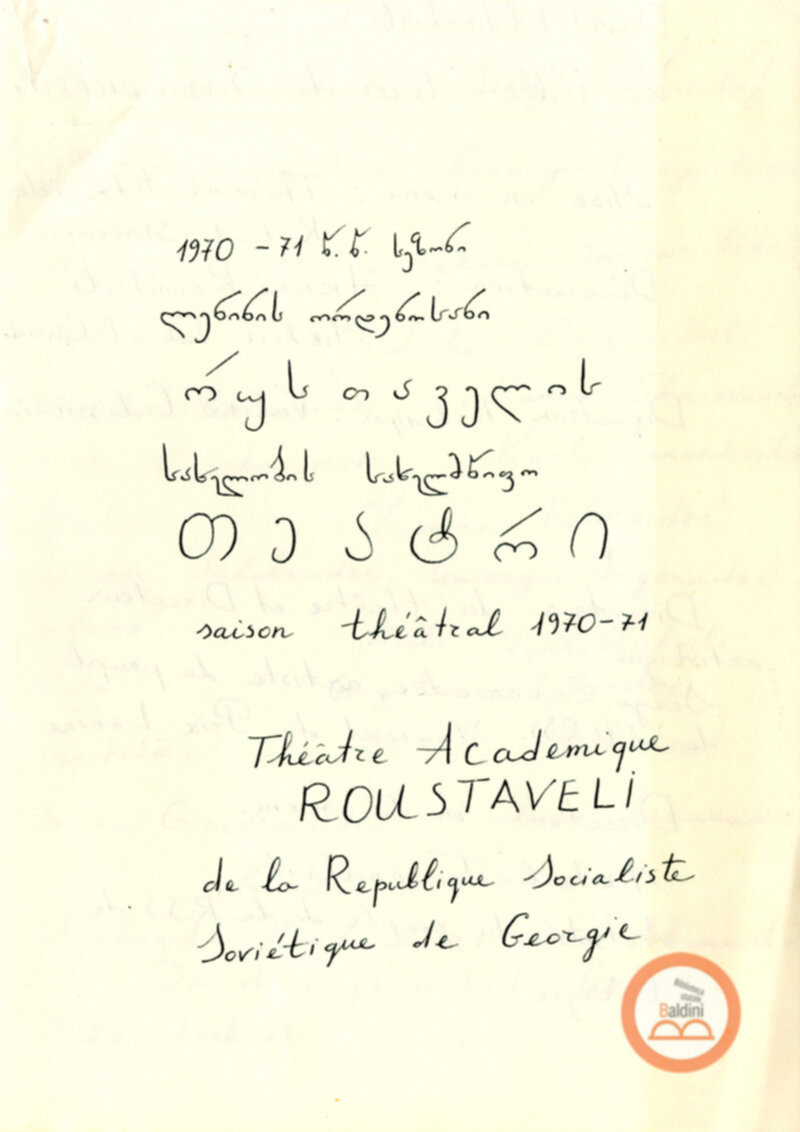 1970 - 71 წ.წ. სეზონი
ლენინის ორდენოსანი
რუსთაველის
სახელობის სახელმწიფო
თეატრი
saison théâtral 1970-71
Théâtre Academique
ROUSTAVELI
de la Republique Socialiste
Soviétique de Georgie
Biblioteca
statale
Baldini